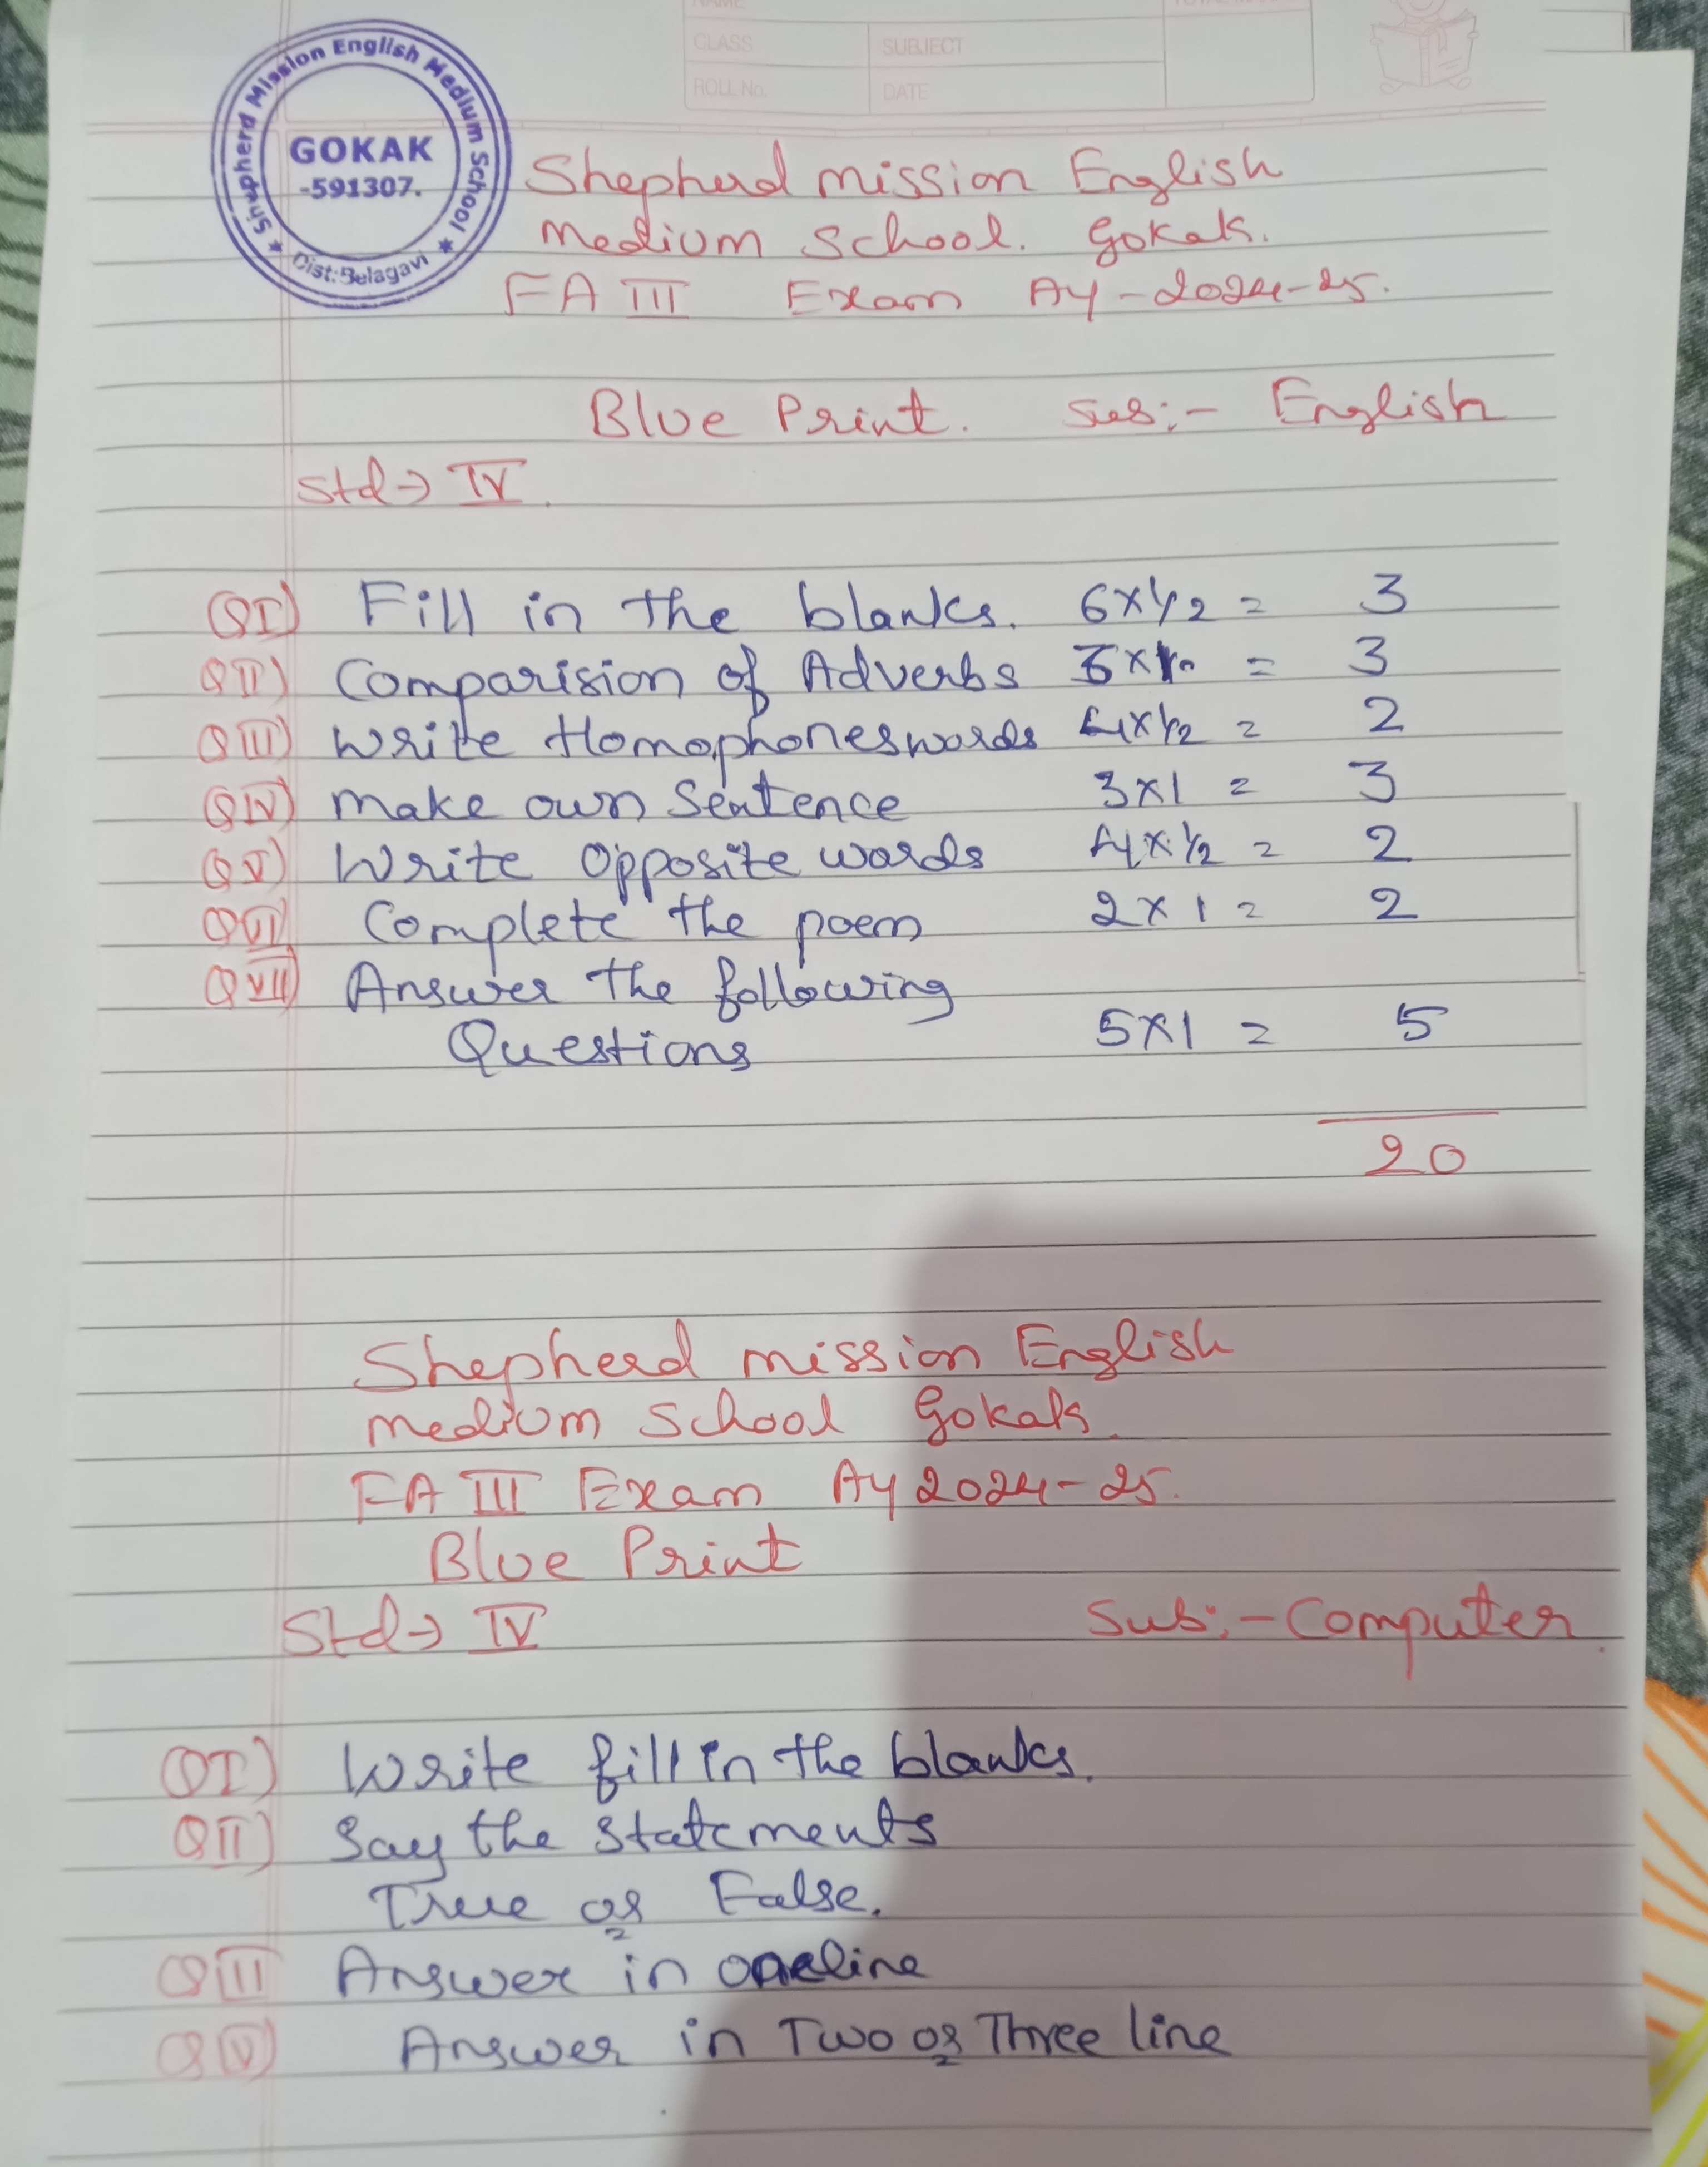 NAME
CLASS SUBJECT
ROLL No. DATE
Shepherd Mission English Medium School
GOKAK
-591307.
Dist:Belagavi
Shepherd mission English
medium School. Gokak.
FA III Exam AY-2024-25.
Blue Print. Sub:- English
Std→ IV.
QI) Fill in the blanks. 6x1/2 = 3
QII) Comparision of Adverbs = 3
QIII) Write Homophones words 4x1/2 = 2
QIV) make own Sentence 3x1 = 3
QV) Write opposite words 4x1/2 = 2
QVI) Complete "the poem 2x1 = 2
QVII) Answer the following
Questions 5x1 = 5
20
Shepherd mission English
medium School Gokak.
FA III Exam AY 2024-25.
Blue Print
Std→ IV Sub:- Computer.
QI) Write fill in the blanks.
QII) Say the Statements
True or False.
QIII Answer in oneline
QIV) Answer in Two or Three line